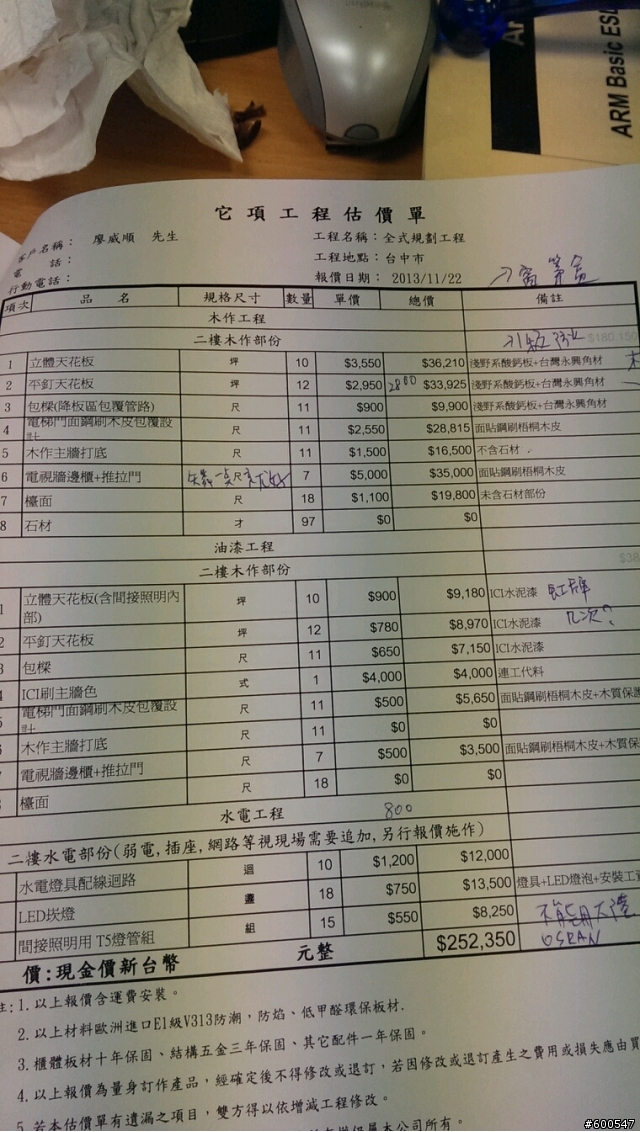 ARM Basic ESL
它項工程估價單
客戶名稱： 廖威順 先生 工程名稱：全式規劃工程
電 話： 工程地點：台中市
行動電話： 報價日期： 2013/11/22
項次 品 名 規格尺寸 數量 單價 總價 備註
木作工程
二樓木作部份 $180,150
1 立體天花板 坪 10 $3,550 $36,210 淺野系酸鈣板+台灣永興角材
2 平釘天花板 坪 12 $2,950 2800 $33,925 淺野系酸鈣板+台灣永興角材
3 包樑(降板區包覆管路) 尺 11 $900 $9,900 淺野系酸鈣板+台灣永興角材
4 電梯門面鋼刷木皮包覆設計 尺 11 $2,550 $28,815 面貼鋼刷梧桐木皮
5 木作主牆打底 尺 11 $1,500 $16,500 不含石材
6 電視牆邊櫃+推拉門 7 $5,000 $35,000 面貼鋼刷梧桐木皮
7 檯面 尺 18 $1,100 $19,800 未含石材部份
8 石材 才 97 $0 $0
油漆工程
二樓木作部份
1 立體天花板(含間接照明內部) 坪 10 $900 $9,180 ICI水泥漆 虹牌
2 平釘天花板 坪 12 $780 $8,970 ICI水泥漆 几次?
3 包樑 尺 11 $650 $7,150 ICI水泥漆
4 ICI刷主牆色 式 1 $4,000 $4,000 連工代料
5 電梯門面鋼刷木皮包覆設計 尺 11 $500 $5,650 面貼鋼刷梧桐木皮+木質保護
6 木作主牆打底 尺 11 $0 $0
電視牆邊櫃+推拉門 尺 7 $500 $3,500 面貼鋼刷梧桐木皮+木質保
檯面 尺 18 $0 $0
水電工程 800
二樓水電部份(弱電,插座,網路等視現場需要追加,另行報價施作)
水電燈具配線迴路 迴 10 $1,200 $12,000
LED崁燈 盞 18 $750 $13,500 燈具+LED燈泡+安裝工資
間接照明用 T5燈管組 組 15 $550 $8,250 不能用大陸
價:現金價新台幣 元整 $252,350 OSRAN
註:1.以上報價含運費安裝。
2.以上材料歐洲進口E1級V313防潮，防焰、低甲醛環保板材.
3.櫃體板材十年保固、結構五金三年保固、其它配件一年保固。
4.以上報價為量身訂作產品，經確定後不得修改或退訂，若因修改或退訂產生之費用或損失應由買
5.若本估價單有遺漏之項目，雙方得以依增減工程修改。
#600547